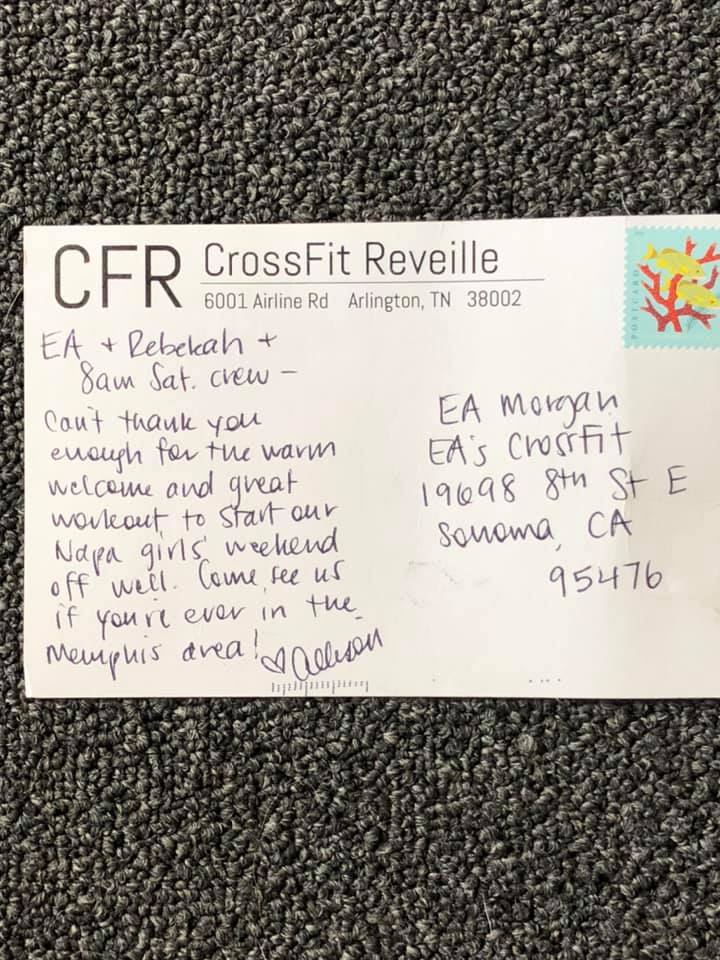 CFR CrossFit Reveille
6001 Airline Rd Arlington, TN 38002
POSTCARD
EA + Rebekah +
8am Sat. crew –
Can't thank you
enough for the warm
welcome and great
workout to start our
Napa girls' weekend
off well. Come see us
if you're ever in the
Memphis area! ♡ Allison
EA Morgan
EA's CrossFit
19698 8th St E
Sonoma, CA
95476